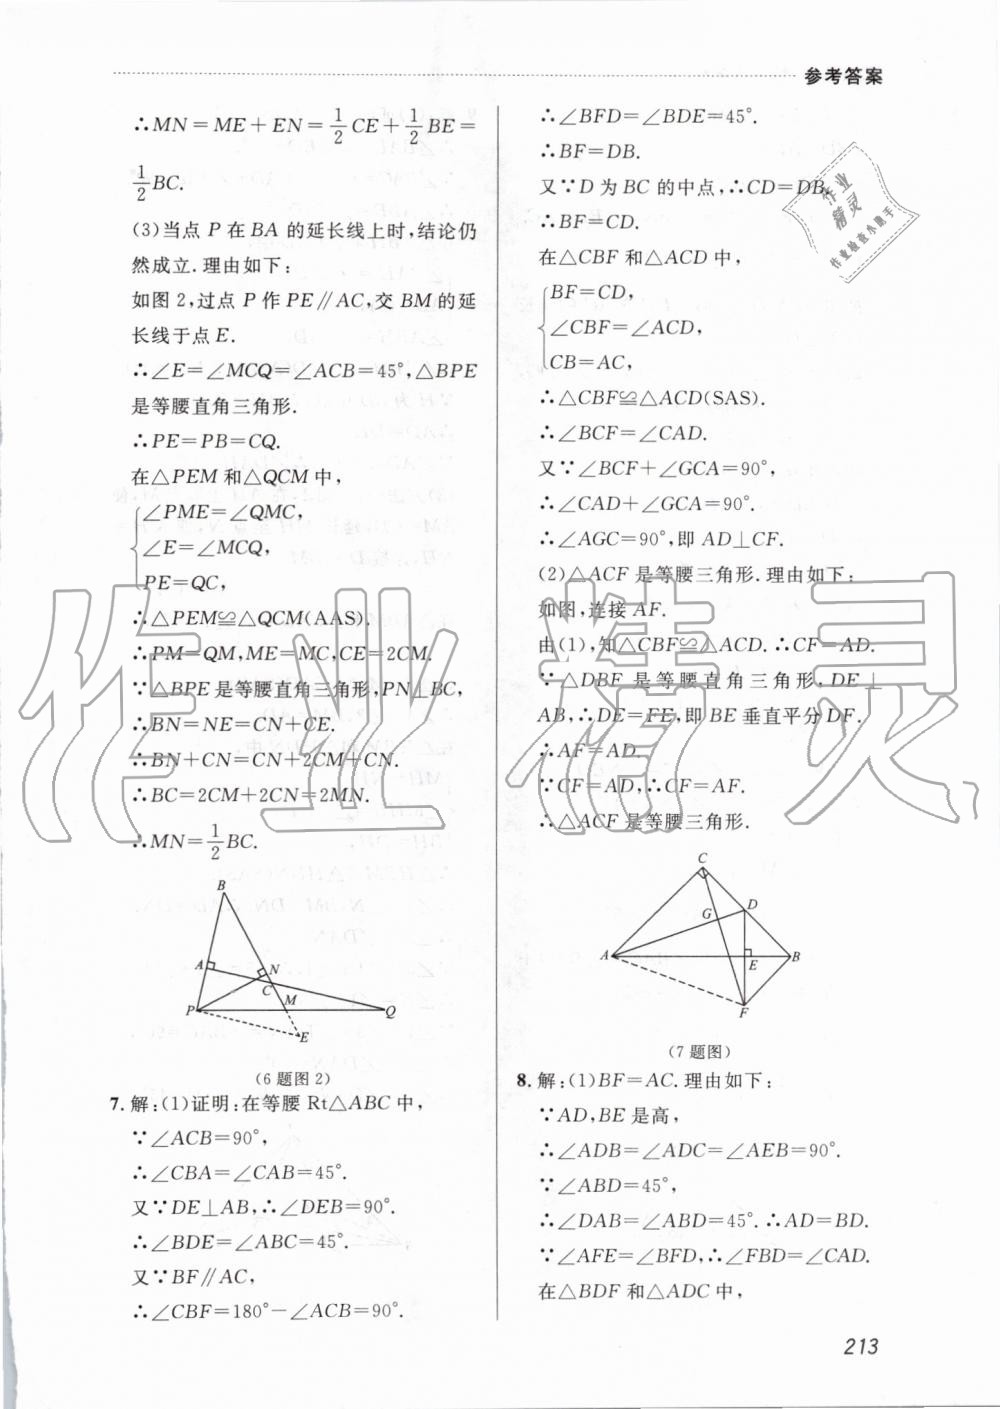 参考答案
∴MN=ME+EN=1/2CE+1/2BE=
1/2BC.
(3)当点P在BA的延长线上时,结论仍
然成立.理由如下:
如图2,过点P作PE∥AC,交BM的延
长线于点E.
∴∠E=∠MCQ=∠ACB=45°,△BPE
是等腰直角三角形.
∴PE=PB=CQ.
在△PEM和△QCM中,
∠PME=∠QMC,
∠E=∠MCQ,
PE=QC,
∴△PEM≌△QCM(AAS).
∴PM=QM,ME=MC,CE=2CM.
∵△BPE是等腰直角三角形,PN⊥BC,
∴BN=NE=CN+CE.
∴BN+CN=CN+2CM+CN.
∴BC=2CM+2CN=2MN.
∴MN=1/2BC.
B
A
N
C
M
P
Q
E
(6题图2)
7.解:(1)证明:在等腰Rt△ABC中,
∵∠ACB=90°,
∴∠CBA=∠CAB=45°.
又∵DE⊥AB,∴∠DEB=90°.
∴∠BDE=∠ABC=45°.
又∵BF∥AC,
∴∠CBF=180°-∠ACB=90°.
∴∠BFD=∠BDE=45°.
∴BF=DB.
又∵D为BC的中点,∴CD=DB.
∴BF=CD.
在△CBF和△ACD中,
BF=CD,
∠CBF=∠ACD,
CB=AC,
∴△CBF≌△ACD(SAS).
∴∠BCF=∠CAD.
又∵∠BCF+∠GCA=90°,
∴∠CAD+∠GCA=90°.
∴∠AGC=90°,即AD⊥CF.
(2)△ACF是等腰三角形.理由如下:
如图,连接AF.
由(1),知△CBF≌△ACD.∴CF=AD.
∵△DBF是等腰直角三角形,DE⊥
AB,∴DE=FE,即BE垂直平分DF.
∴AF=AD.
∵CF=AD,∴CF=AF.
∴△ACF是等腰三角形.
C
D
G
A
E
B
F
(7题图)
8.解:(1)BF=AC.理由如下:
∵AD,BE是高,
∴∠ADB=∠ADC=∠AEB=90°.
∵∠ABD=45°,
∴∠DAB=∠ABD=45°.∴AD=BD.
∵∠AFE=∠BFD,∴∠FBD=∠CAD.
在△BDF和△ADC中,
213
作业精灵
作业
精灵
作业检查小助手